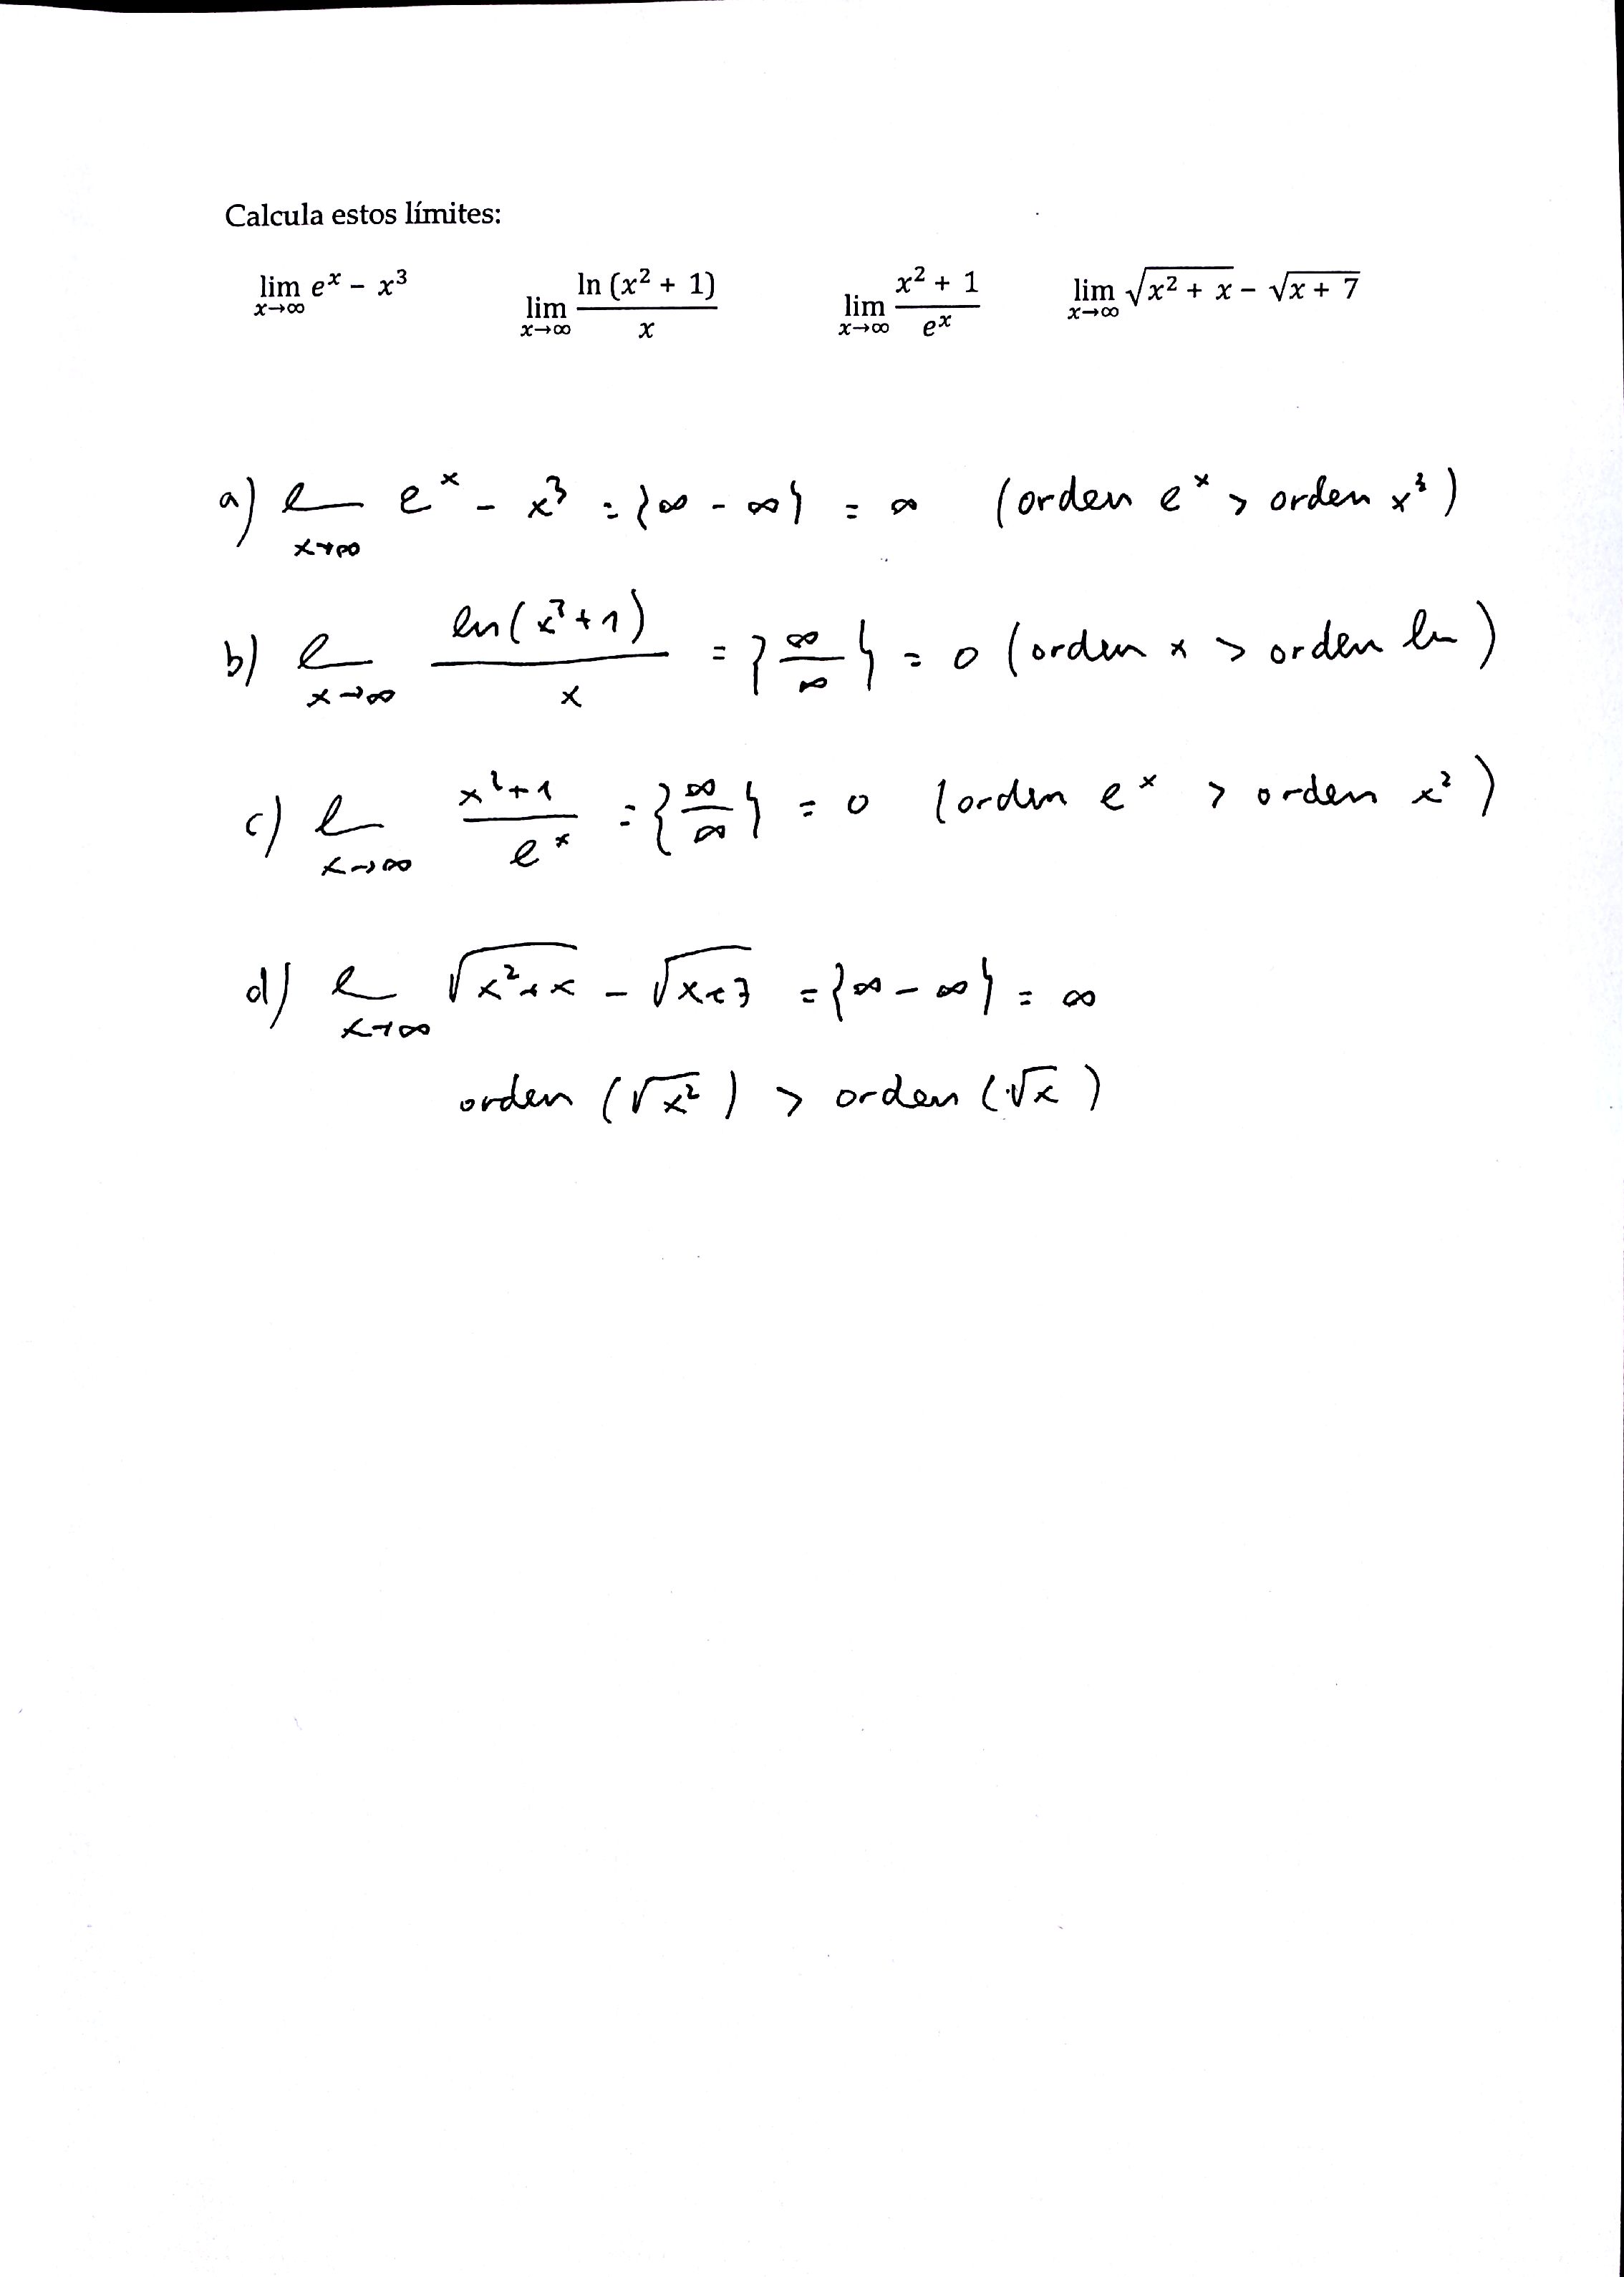 Calcula estos límites:
lim x→∞ e^x − x^3    lim x→∞ ln (x^2 + 1) / x    lim x→∞ (x^2 + 1) / e^x    lim x→∞ √(x^2 + x) − √(x + 7)
a) l x→∞ e^x - x^3 = {∞ - ∞} = ∞ (orden e^x > orden x^3)
b) l x→∞ ln(x^2+1) / x = {∞/∞} = 0 (orden x > orden ln)
c) l x→∞ (x^2+1) / e^x = {∞/∞} = 0 (orden e^x > orden x^2)
d) l x→∞ √(x^2+x) - √(x+7) = {∞ - ∞} = ∞
orden (√x^2) > orden (√x)